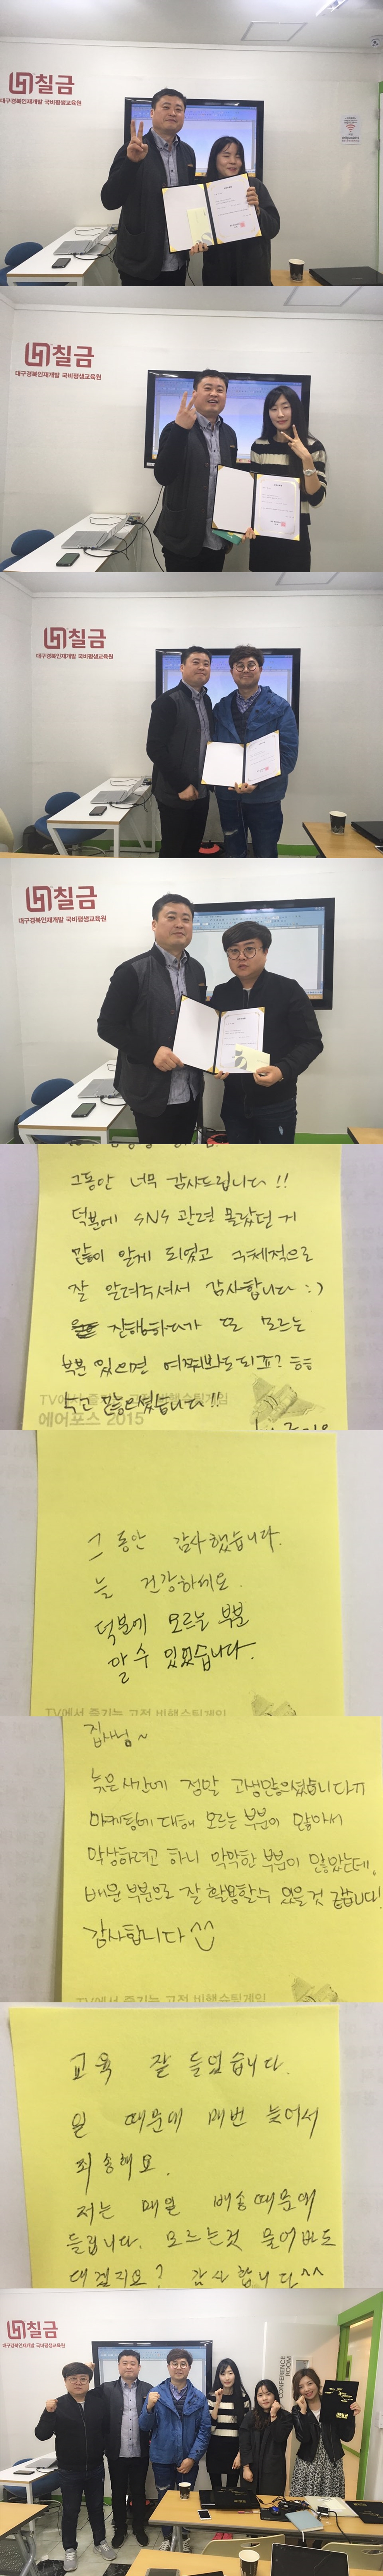 칠금
대구경북인재개발 국비평생교육원
칠금
대구경북인재개발 국비평생교육원
칠금
대구경북인재개발 국비평생교육원
칠금
대구경북인재개발 국비평생교육원
그동안 너무 감사드립니다!!
덕분에 SNS 관련 몰랐던 게
많이 알게 되었고 구체적으로
잘 알려주셔서 감사합니다 :)
진행하다가 또 모르는
부분 있으면 여쭤봐도 되죠? ㅎㅎ
수고 많으셨습니다!!
TV에서 즐기는 고전 비행슈팅게임
에어포스 2015
그동안 감사했습니다.
늘 건강하세요.
덕분에 모르는 부분
알 수 있었습니다.
TV에서 즐기는 고전 비행슈팅게임
집사님~
늦은시간에 정말 고생많으셨습니다ㅠ
마케팅에 대해 모르는 부분이 많아서
막상하려고 하니 막막한 부분이 많았는데,
배운 부분으로 잘 활용할수 있을것 같습니다!
감사합니다 ^^
TV에서 즐기는 고전 비행슈팅게임
교육 잘 들었습니다.
일 때문에 매번 늦어서
죄송해요.
저는 매일 배송때문에
들립니다. 모르는것 물어봐도
되겠지요? 감사합니다^^
칠금
대구경북인재개발 국비평생교육원
CONFERENCE
ROOM